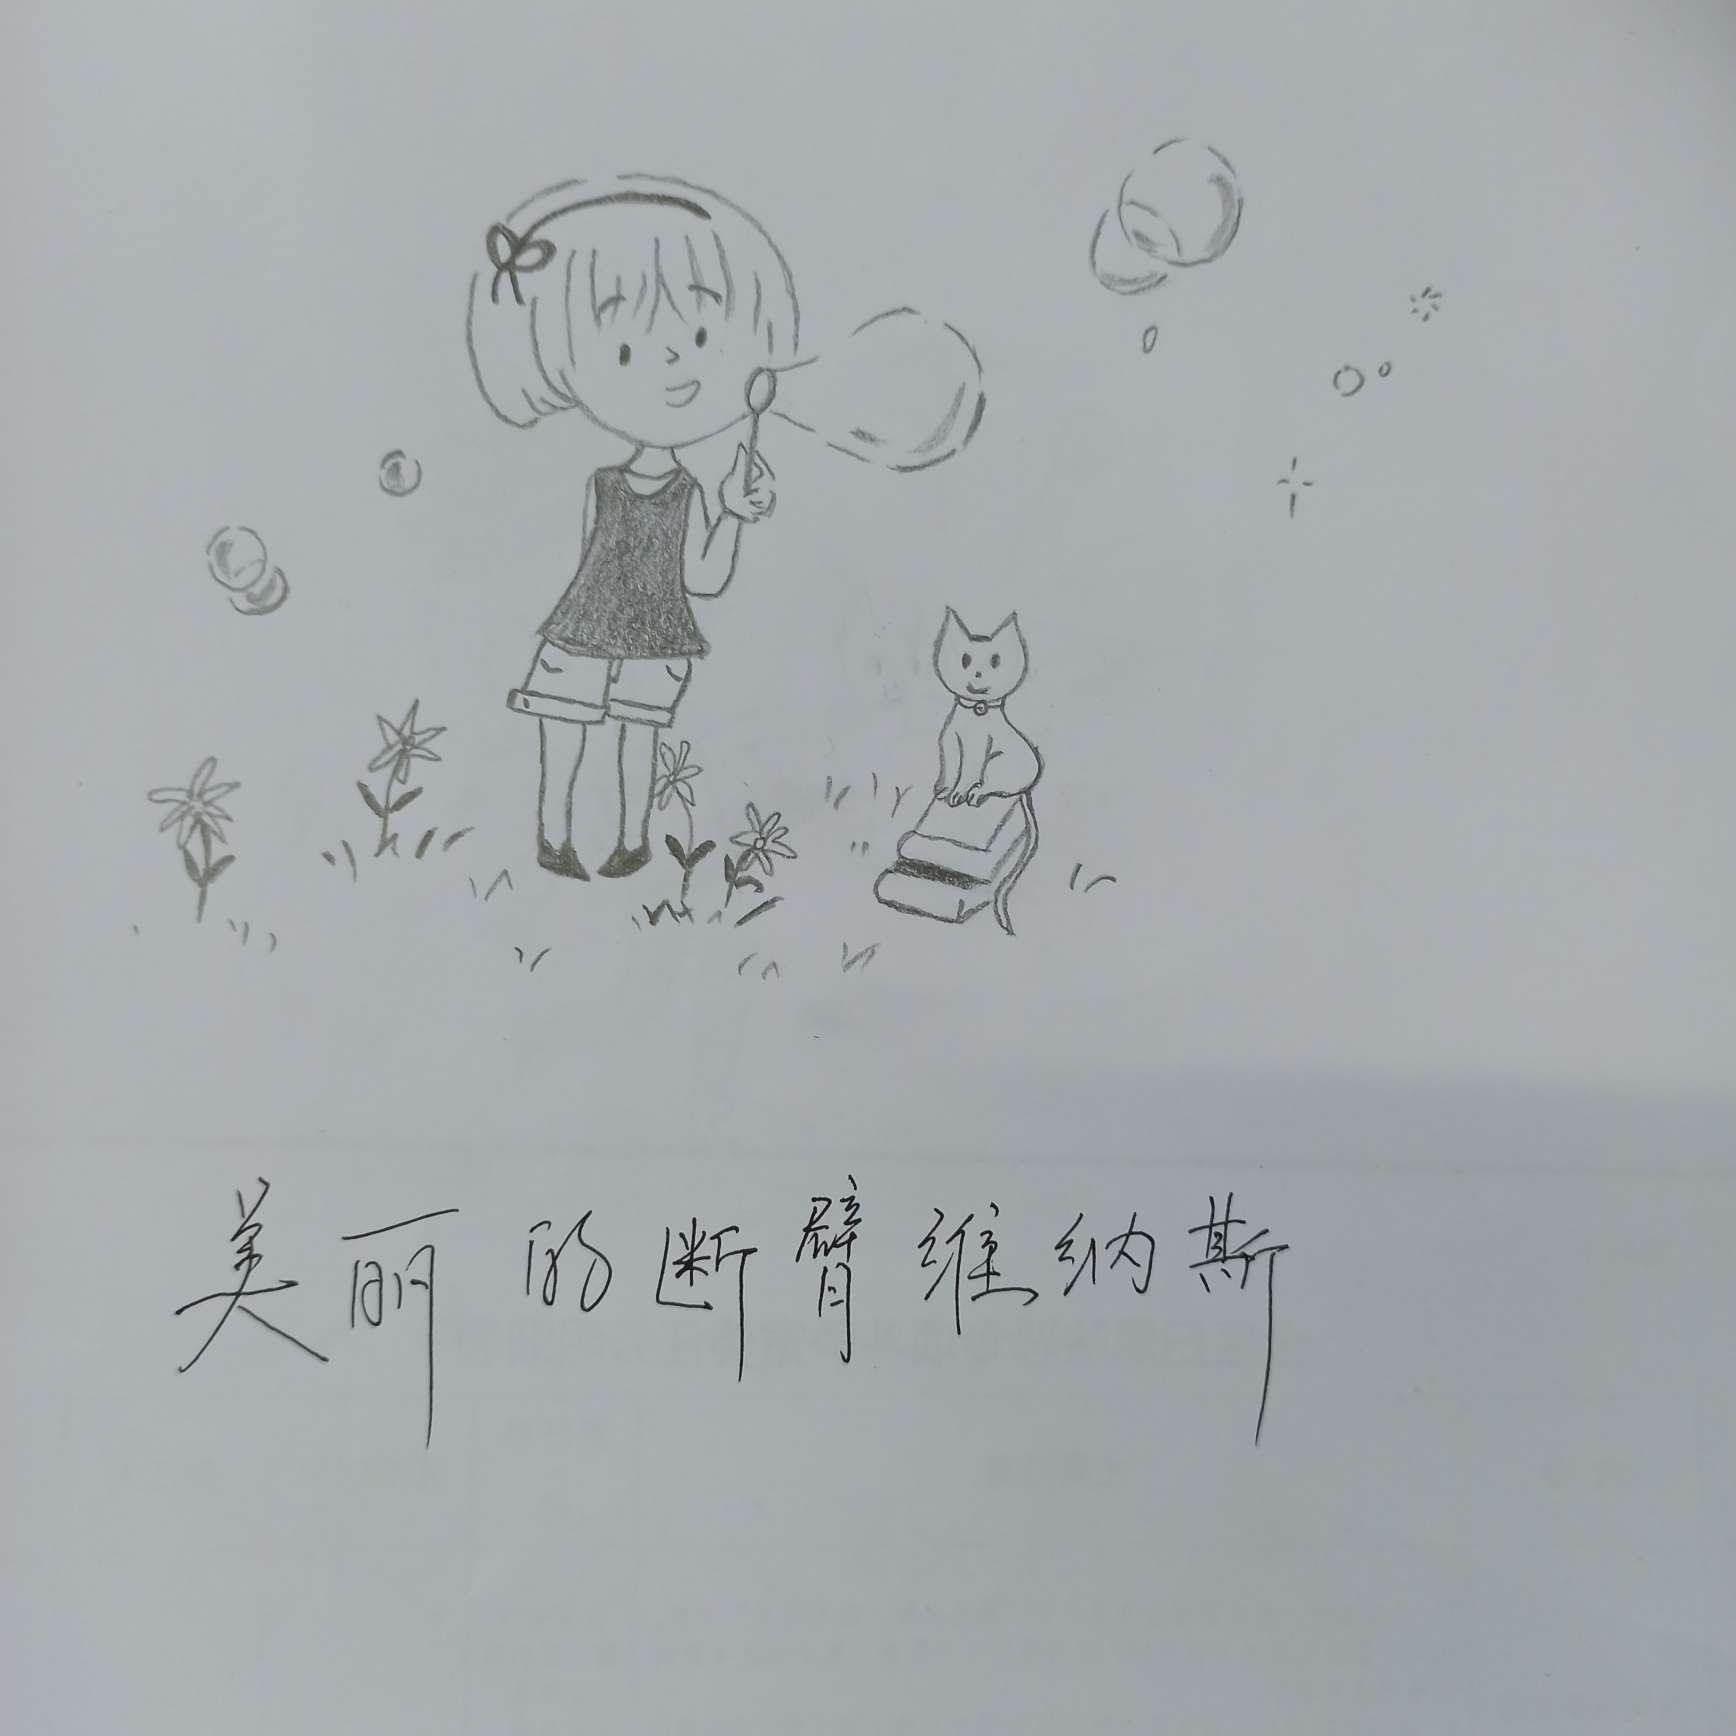 美丽的断臂维纳斯